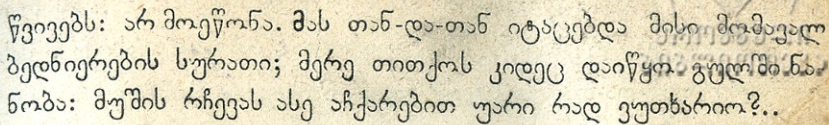 წვივებს: არ მოეწონა. მას თან-და-თან იტაცებდა მისი მომავალ
ბედნიერების სურათი; მერე თითქოს კიდეც დაიწყო გულში ნა-
ნობა: მუშის რჩევას ასე აჩქარებით უარი რად ვუთხარიო?..